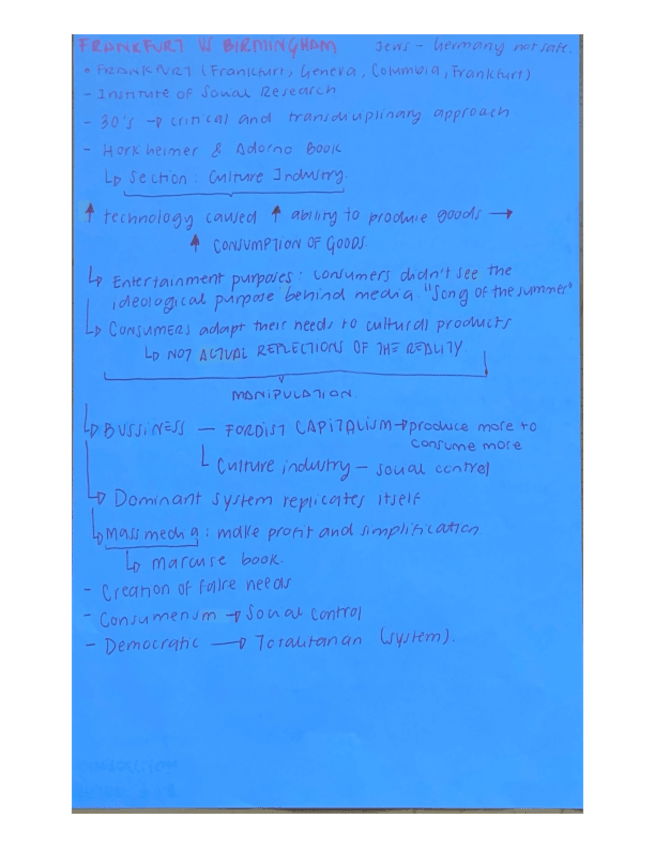 FRANKFURT VS BIRMINGHAM Jews - Germany not safe.
• FRANKFURT (Frankfurt, Geneva, Columbia, Frankfurt)
- Institute of Social Research
- 30's → critical and transdisciplinary approach
- Horkheimer & Adorno Book
↳ Section: Culture Industry.
↑ technology caused ↑ ability to produce goods →
↑ CONSUMPTION OF GOODS.
↳ Entertainment purposes: consumers didn't see the
ideological purpose behind media. "Song of the summer"
↳ CONSUMERS adapt their needs to cultural products
↳ NOT ACTUAL REFLECTIONS OF THE REALITY
MANIPULATION.
↳ BUSSINESS — FORDIST CAPITALISM → produce more to
consume more
Culture industry — social control
↳ Dominant system replicates itself
↳ Mass media: make profit and simplification
↳ marcuse book.
- Creation of false needs
- Consumerism → Social control
- Democratic → Totalitarian (system).